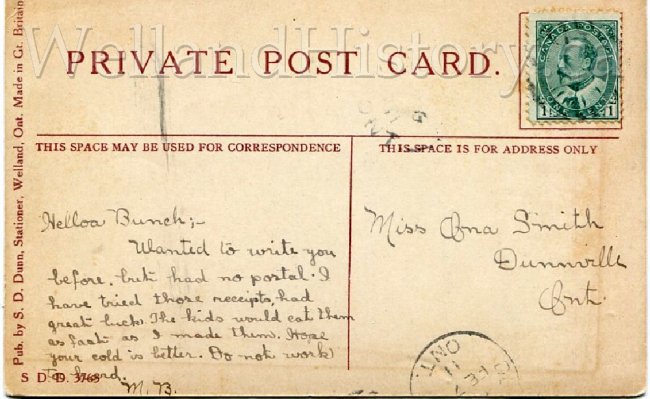 WellandHistory
PRIVATE POST CARD.
CANADA POSTAGE
1 1
THIS SPACE MAY BE USED FOR CORRESPONDENCE
THIS SPACE IS FOR ADDRESS ONLY
Pub. by S. D. Dunn, Stationer, Welland, Ont. Made in Gt. Britain
Helloa Bunch;-
Wanted to write you
before, but had no postal. I
have tried those receipts, had
great luck. The kids would eat them
as fast as I made them. Hope
your cold is better. Do not work
to hard.
M. B.
Miss Ona Smith
Dunnville
Ont.
S D D. 3763
ONT